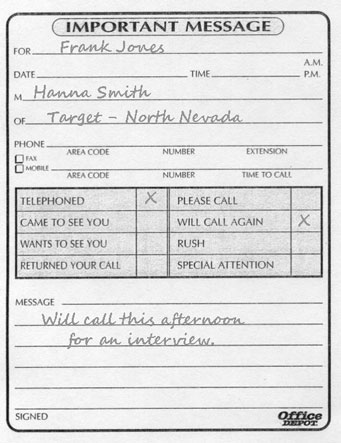 IMPORTANT MESSAGE
FOR Frank Jones
A.M.
DATE TIME P.M.
M Hanna Smith
OF Target - North Nevada
PHONE
AREA CODE NUMBER EXTENSION
FAX
MOBILE
AREA CODE NUMBER TIME TO CALL
TELEPHONED X PLEASE CALL
CAME TO SEE YOU WILL CALL AGAIN X
WANTS TO SEE YOU RUSH
RETURNED YOUR CALL SPECIAL ATTENTION
MESSAGE
Will call this afternoon
for an interview.
SIGNED Office
DEPOT